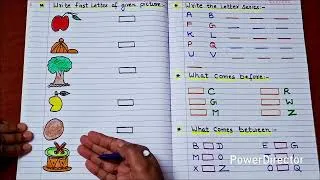 Write first letter of given picture:-
Write the letter series:-
A B
F G
K L
P Q
U V
What comes before:-
C R
G W
M Z
What comes between:-
B D E G
M O
PowerDirector
X Z O Q